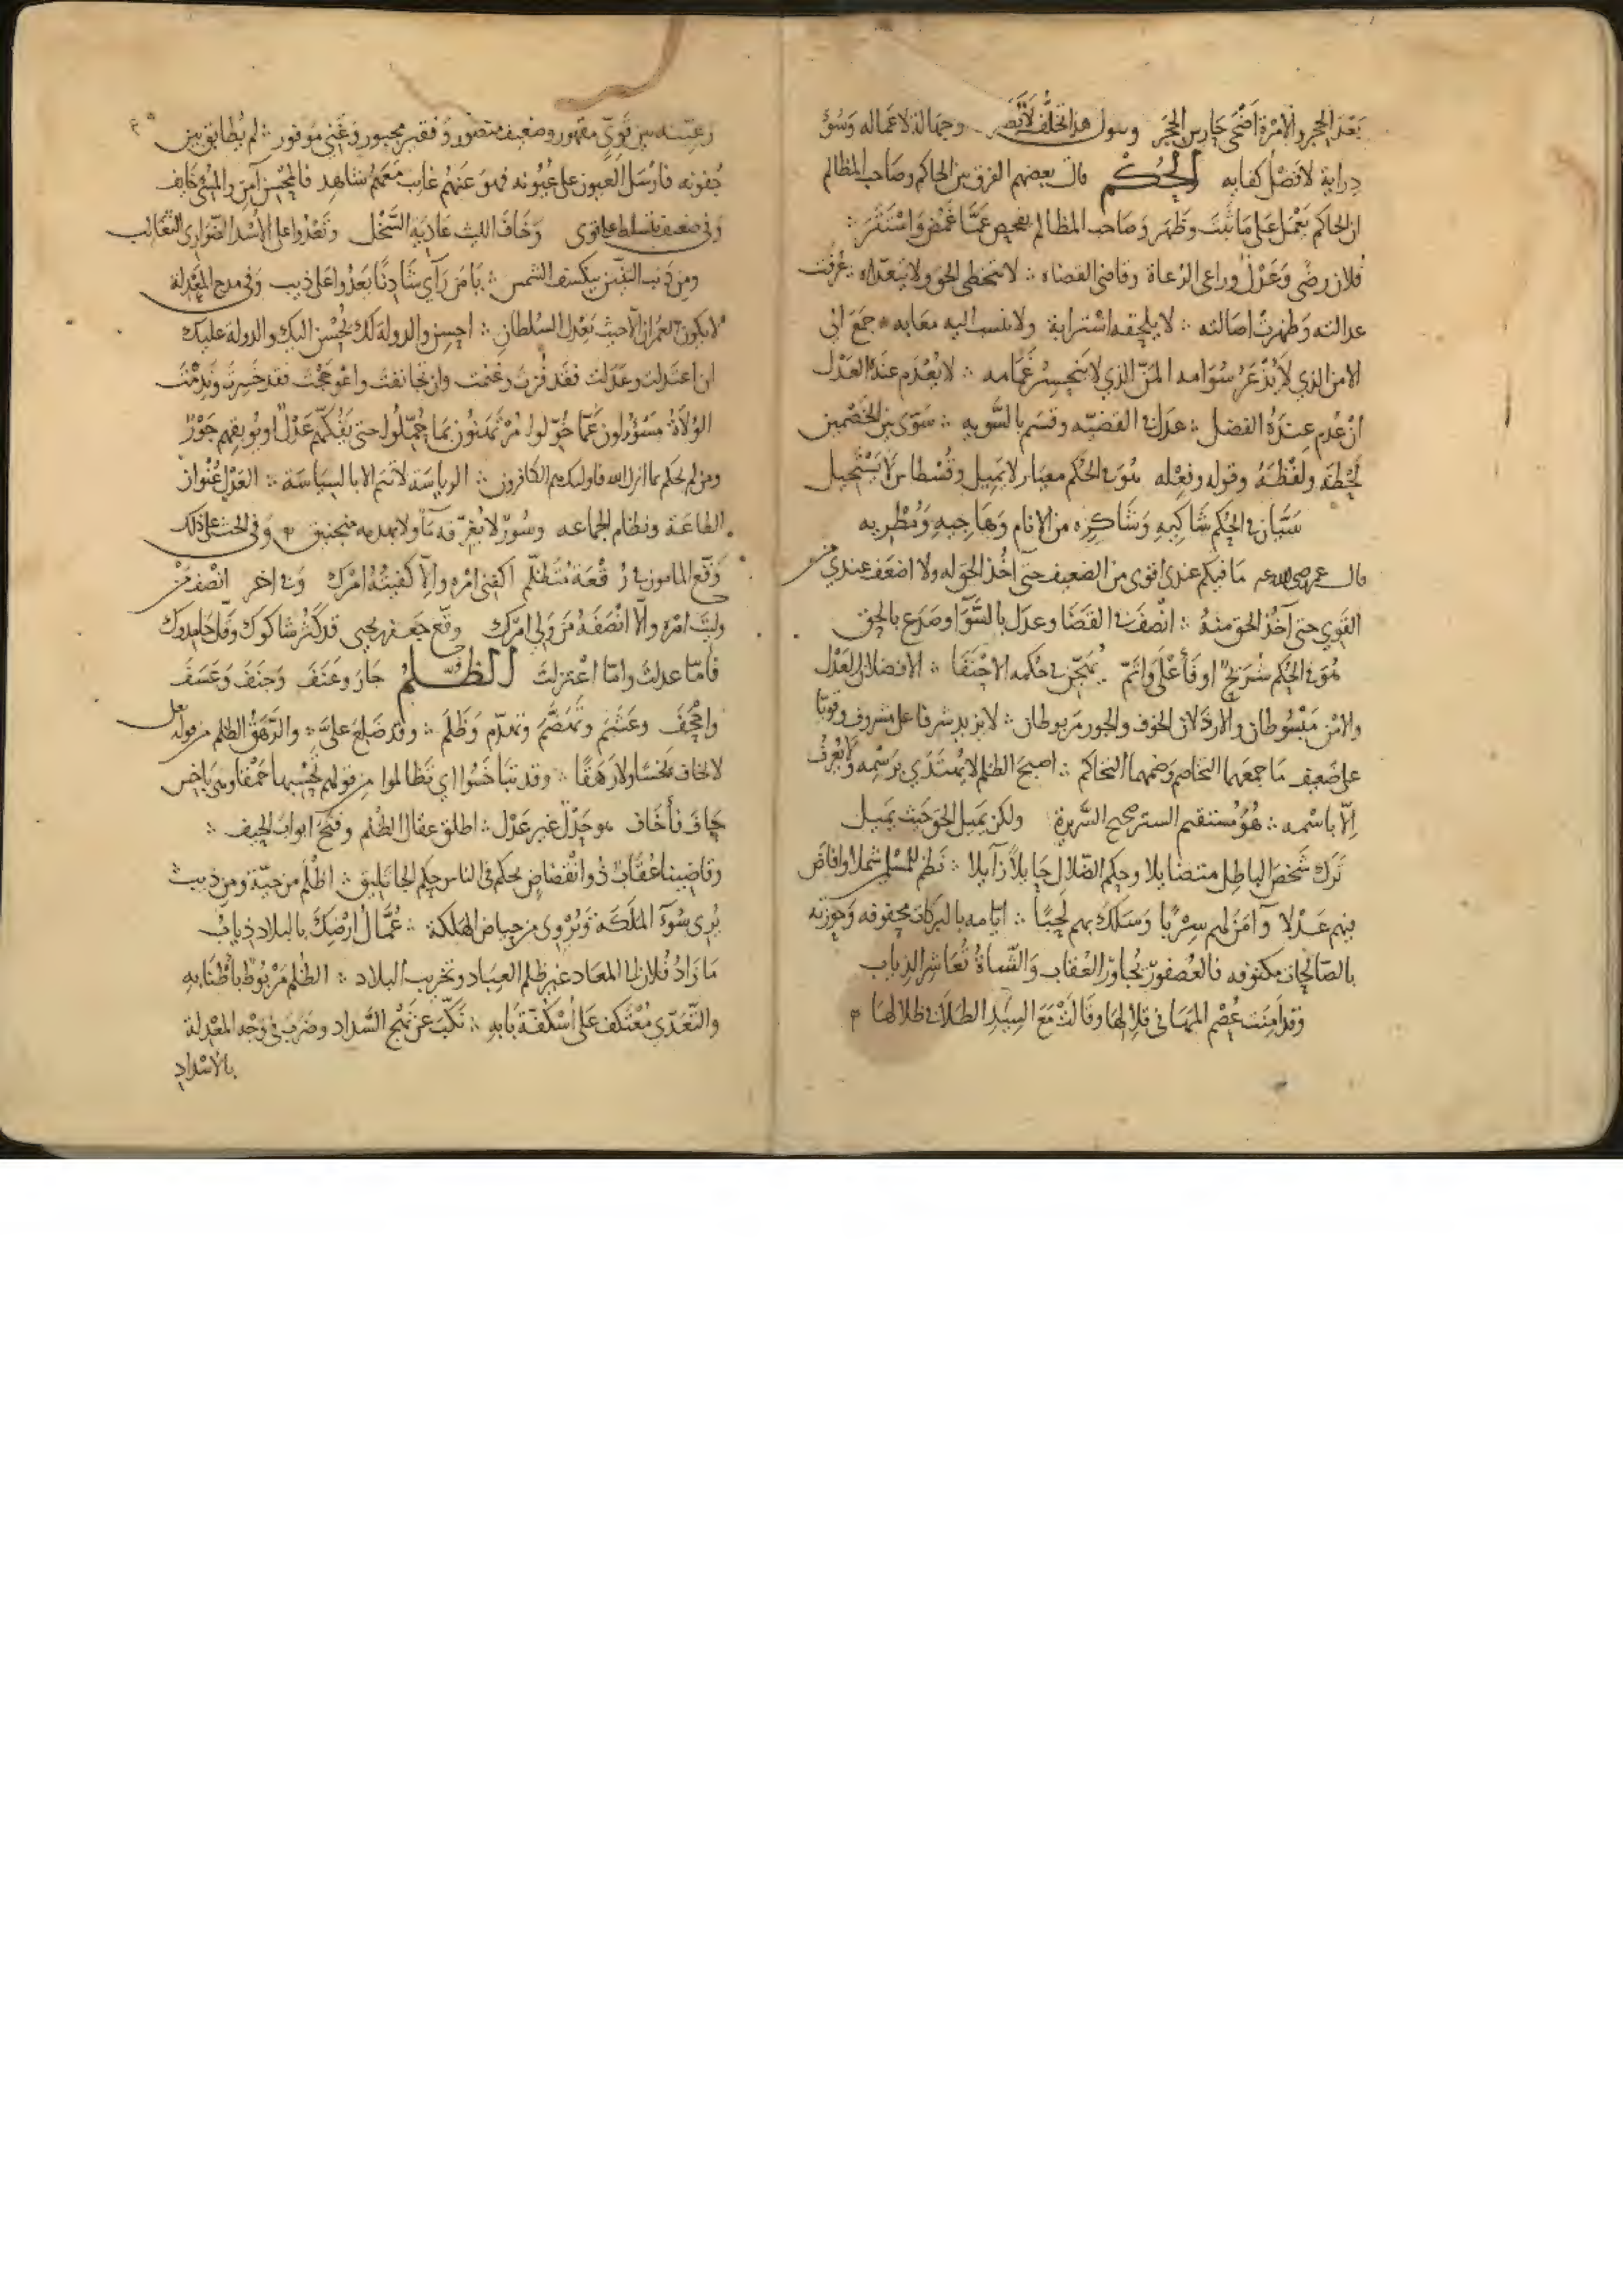 بَعْدَ الحِجر والامرة اَضْحَى حارس الحجَر وجهالة لاعماله وَسُوٓء
دراية لا فضل كفايه الحُكْم قال بعضهم الفرق بين الحاكم وصاحب المظالم
ان الحاكم يَعْمَل عَلى مَا ثَبتَ وظَهَر وَصَاحب المظالم يفحص عَمَّا غَمُضَ وَاسْتَتَرَ
فلان رضًى وَعَدْلٌ وراعى الرُعاة وقاضى القضاه لا يتخطى الحق ولا يتعدّاه عُرفت
عدالته وَظهرتْ اصالته لا يلحقه اسْترابة ولا ينسب اليه معَابه جمَعَ الى
الامن الذي لا يُذْعَرُ سَوَامه المَنّ الذي لا يَنحسِرُ غَمَامه لا يُعْدَم عنْدَهُ العَدْل
انْ عُدِم عِندَهُ الفضل عدل فى القضيّه وقسَم بالسَّويه سَوّى بين الخَصْمين
لَحْظَه ولَفْظَهُ وقوله وفعْله هُوَ فى الحُكْم معيَار لا يَميل وقُسْطاس لا يَسْتَحيل
سَيَّان فى الحُكْم شَاكِيهِ وَشَاكِره من الانام وَهَاجِيهِ وَمُطْريه
قال عمر رضى الله عنه مَا فيكم عندى اقوى من الضعيف حتى آخُذ الحق له ولا اضعَف عندى من
القَوِي حتى آخُذَ الحق منهُ انْصفَ فى القَضَا وعدَل بالسَّوَا وصَدَع بالحق
هُوَ فى الحُكْم شُرَيحٌ او فَأَعْلَى وَاتَمّ الافضلان العَدْل
والامْن مَبْسُوطان والارذلان الخوف والجور مَربوطان لا يزيد شرفا على مشروف وقويّا
على ضَعيف مَا جمعَهما التخاصم وضمهما التحاكم اصبحَ الظلم لا يُهتَدَي برَسْمِه ولا يُعْرفُ
اِلّا باسْمه هُوَ مُستقيم الستر صحيح السَّريرة ولكن يَميل الحق حَيث يَميل
تَركَ شَخصَ الباطِل متضايلا وحكم الضّلال حَايلًا زَايلا نَظم للمُسْلمين شملا وافاضَ
فيهم عَدْلا وآمَنَ لهم سِرْبًا وَسَلَكَ بهم لَحِبًا ايّامه بالبَركات محفوفه وَحَوزته
بالصّالحات مكنوفه فالعُصفور يُجاور العُقاب وَالشّاةُ تُعَاشِر الذياب
وَقدْ اَمِنَت عُصْم المهَا فى قِلالِهَا وقَالَتْ مَعَ السِيْدِ الطَلَا فى ظلالهَا
رعيّته بين قَوِيٍّ مقهور وضعيف منصُور وَفقير مجبور وَغَني مَوفور لم يُطابق بين
جُفونه فارْسَل العيون على عُيُونه فهوَ عَنهُم غايب مَعَهُمْ شاهِد فالمحْسن آمن والمسِئ خَايف
وَفى ضعيف يتسَلط على قوى وَخَافَ الليث عَادِيَة السَّخْل وتَعْدُوا على الأُسْد الضوارى الثعَالب
ومِن ذنب التنّين ينكسف الشمس يا مَن رَآى شَادِنًا يَعدُوا عَلى ذيب وَفى مدح المَعْدِلة
لا يكون العُمرَان اِلّا حيث يَعْدل السُلطان احسِن والدولة لك يُحْسَن اليك والدولة عليك
ان اعتدلت وعَدَلت فقَد فُزتَ وغنمت وان تجانفتَ واعوججْتَ فقد خَسِرتَ ونَدِمْتَ
الوُلَاة مَسؤُلون عَمَّا خُوّلوا مُرْتَهَنُون بمَا حُمِّلُوا حتى يَفُكّهم عَدْلٌ او يُوبِقهم جَوْرٌ
ومن لم يحكم بما انزل الله فاوليك هم الكافرون الرياسَة لا تتم الا بالسيَاسَة العَدْل عُنْوان
الطاعَة ونظام الجماعه وسُورٌ لا يُغرّقه مَآء ولا يهدمه منجنيق وَفى الحث على ذلك
وَقّع المامون فى رُقْعَة مُتَظلّم اكفنى امْره والّا كَفَيتُهُ امْرَك وَفى اخر انْصف مَنْ
وليتَ امْره والّا انْصَفَهُ مَن وَلى امْرَك وقّع جَعفر بن يحيى قد كَثُر شاكوك وقَلّ حَامِدوك
فأمّا عدلتَ وامّا اعْتزلتَ الظُّلمُ جَارَ وعَنَفَ وَجَنَفَ وَعَسَفَ
واجْحَفَ وغَشَمَ وتَهَضَّمَ وَظَلَمَ وقد ضَلِعَ علىَّ والرَّهَقُ الظلم من قوله تعلى
لا يخاف بَخسًا ولا رَهَقًا وقد تبَاخَسُوا اي تَظالموا مِن قولهم تَحْسِبها حَمْقا وهى بَاخس
حَافَ فأخاف هو جَدْلٌ غير عَدْل اطلق عقال الظُلم وفَتحَ ابوابَ الحيف
وقاضِينا عُقَابٌ ذُو انْقضاضٍ يحكم فى الناس حكم الجاثليق اظْلَم من حيّة ومِن ذيب
يُرِى سُوٓءَ المَلَكَة وَيُرْوِى من حياض الهَلكة عُمَّالُ اَرْضِكَ بالبلاد ذيابُ
مَا زَادُ فُلان الى المعَاد غير ظلم العِبَاد وتخريب البلاد الظُلم مَرْبُوطٌ بأطْنَابهِ
والتَّعَدّي مُعْتكف عَلَى اُسْكُفّة بَابهِ نَكَّبَ عن نَهْج السَّداد وضَرَبَ فى وَجْه المعْدِلة
بالاسْداد